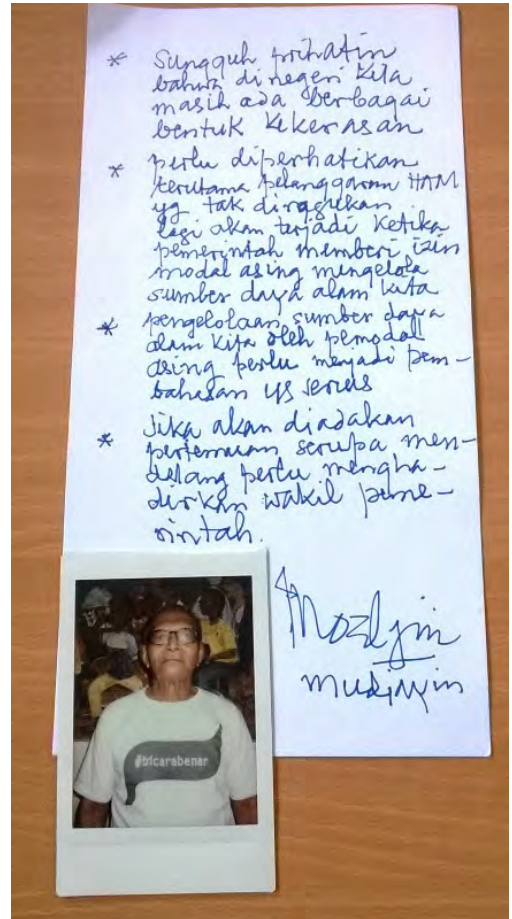 * Sungguh prihatin
bahwa di negeri kita
masih ada berbagai
bentuk kekerasan
* perlu diperhatikan
terutama pelanggaran HAM
yg tak diragukan
lagi akan terjadi ketika
pemerintah memberi izin
modal asing mengelola
sumber daya alam kita
* pengelolaan sumber daya
alam kita oleh pemodal
asing perlu menjadi pem-
bahasan yg serius
* Jika akan diadakan
pertemuan serupa men-
datang perlu mengha-
dirkan wakil peme-
rintah.
#bicarabenar